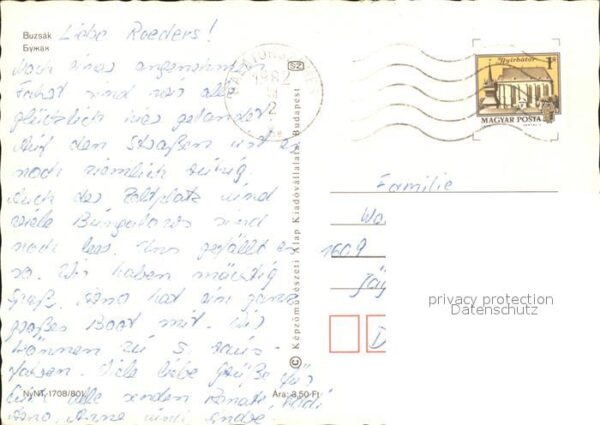 Buzsák
Бужак
Liebe Roeders!
Nach einer angenehmen
Fahrt sind wir alle
glücklich hier gelandet
Auf den Straßen ist es
noch ziemlich ruhig.
Auch der Zeltplatz und
viele Bungalows sind
noch leer. Uns gefällt es
so. Wir haben mächtig
Spaß. Arno hat ein ganz
großes Boot mit. Wir
können zu 5. raus-
fahren. Viele liebe Grüße für
alle senden Renate,
Arno, Anne und Andre.
NyNT-1708/801
Ára: 3,50 Ft
© Képzőművészeti Alap Kiadóvállalata, Budapest
SZ
1982
Nyírbátor
1 Ft
MAGYAR POSTA
Familie
1609
privacy protection
Datenschutz